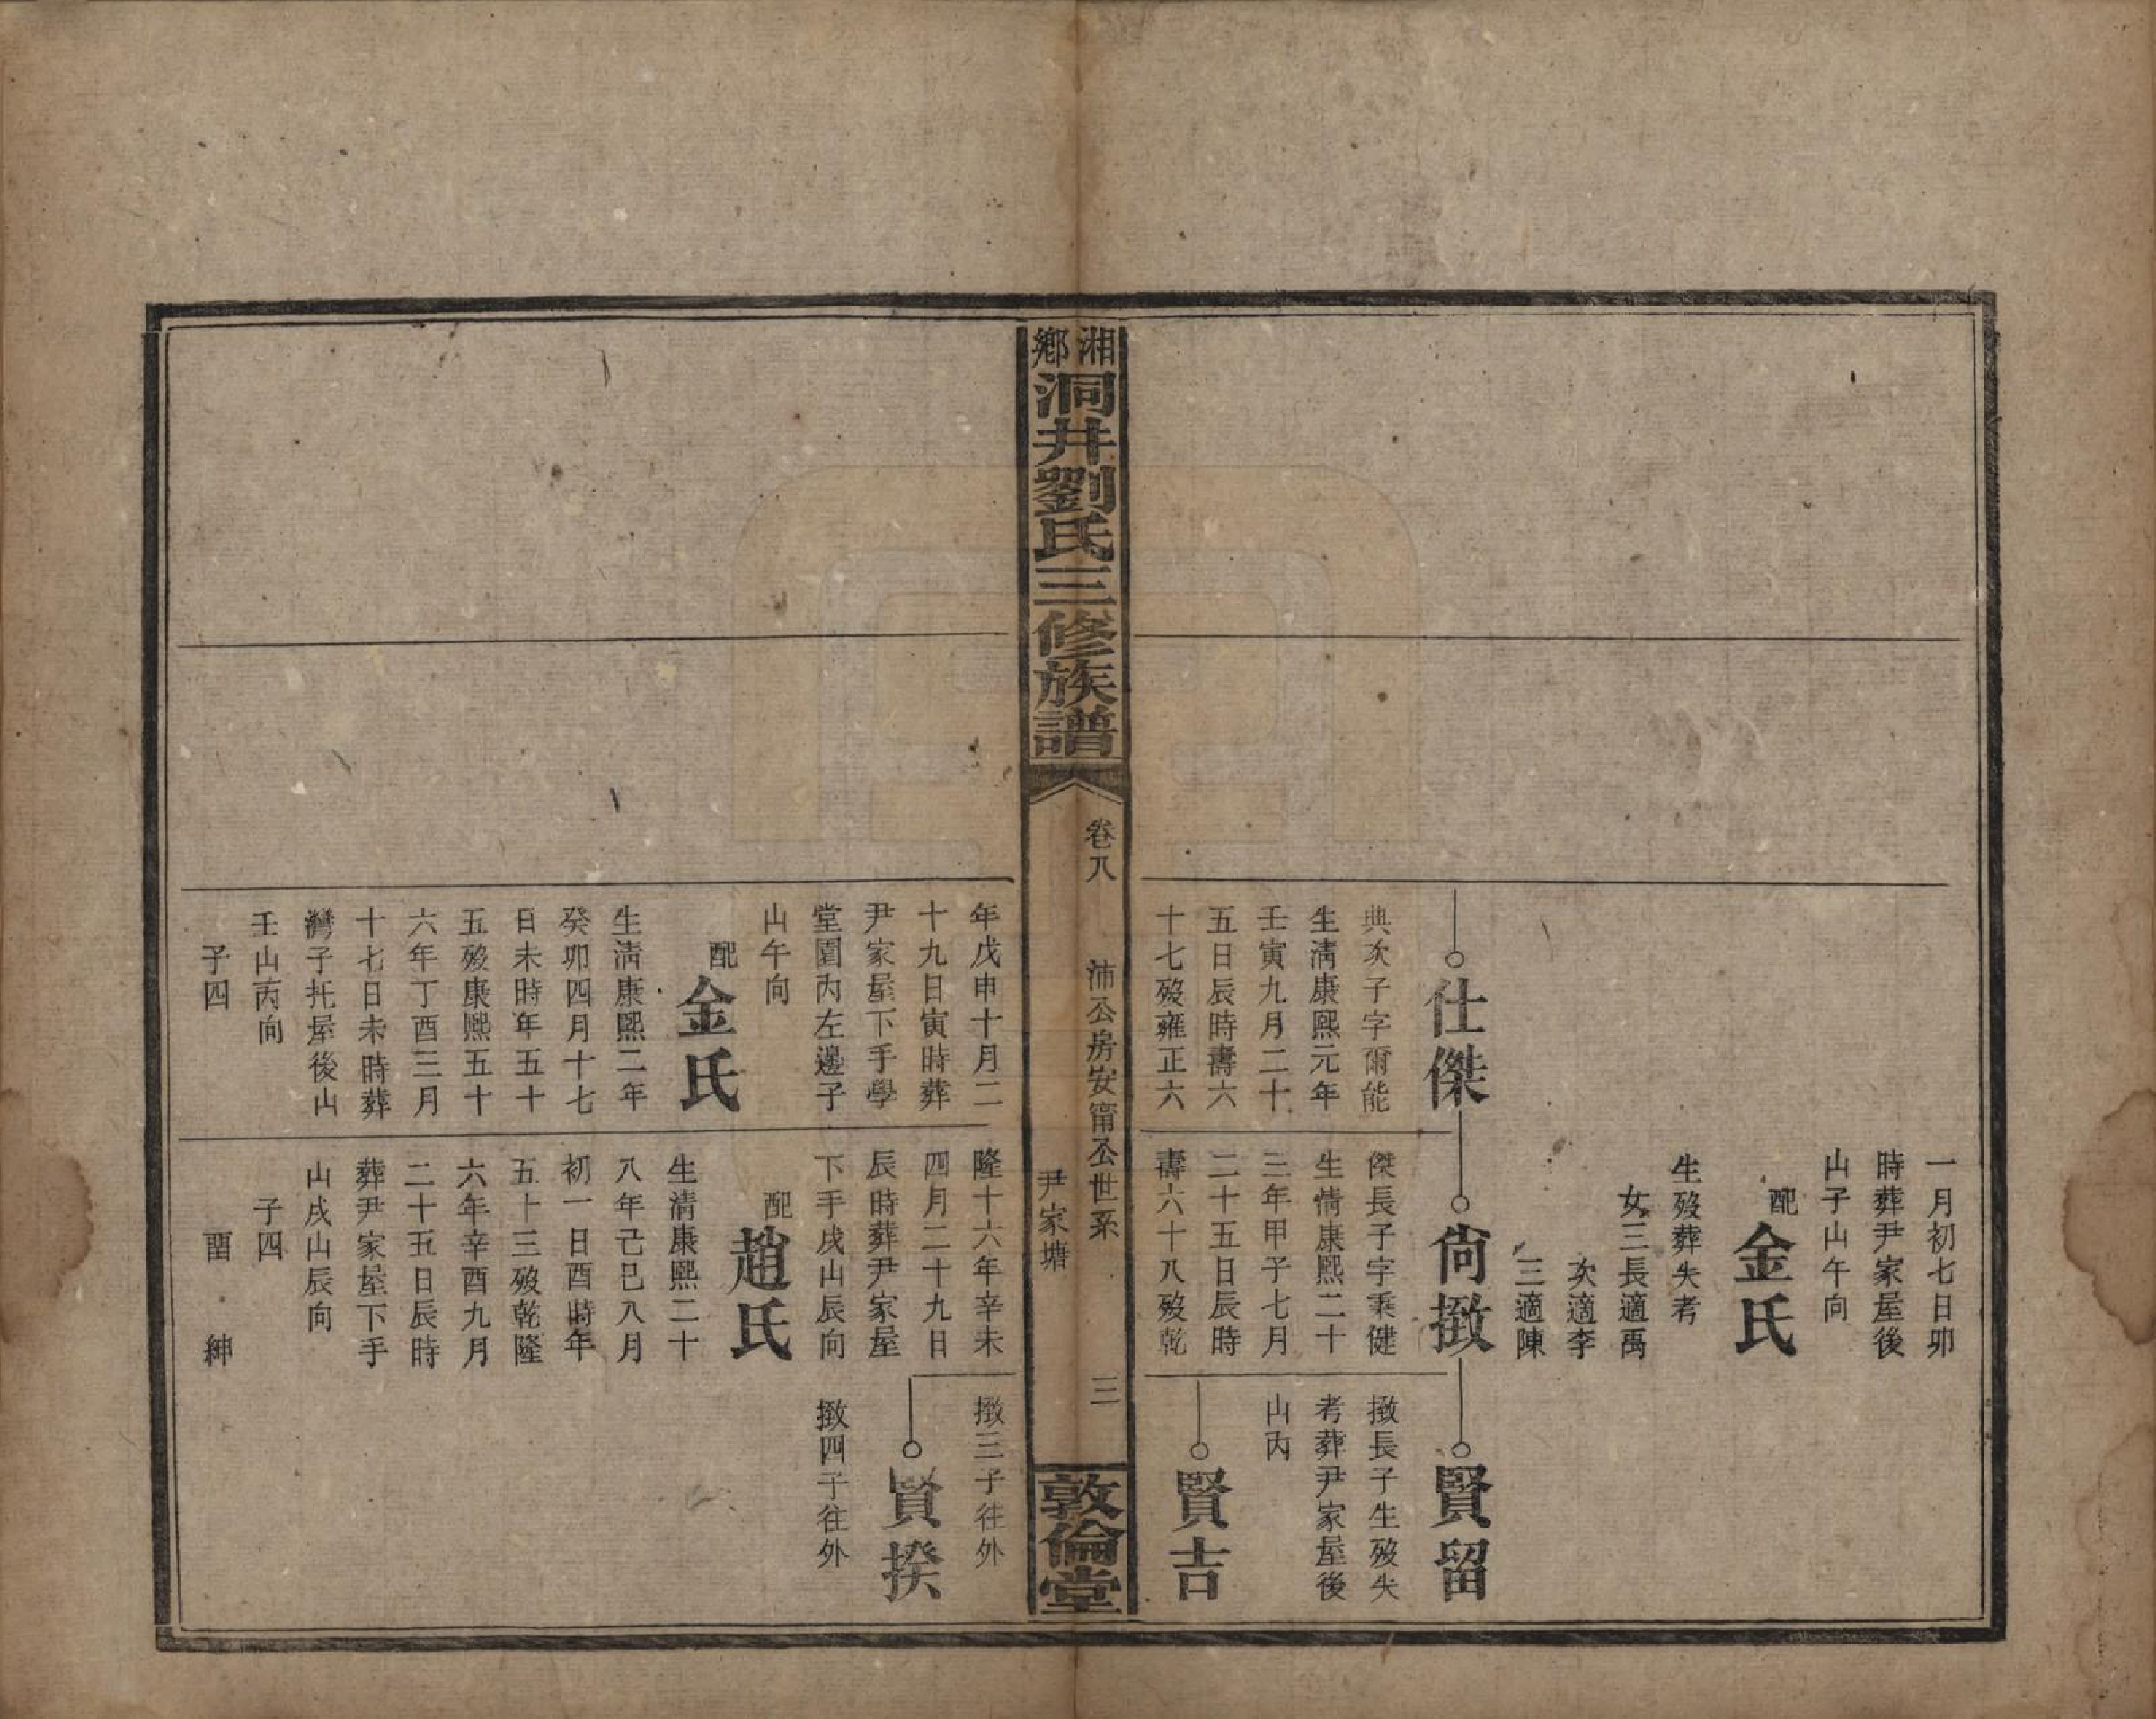 一月初七日卯
時葬尹家屋後
山子山午向
配
金氏
生歿葬失考
女三長適禹
次適李
三適陳
仕傑
典次子字爾能
生清康熙元年
壬寅九月二十
五日辰時壽六
十七歿雍正六
尚撴
傑長子字秉健
生清康熙二十
三年甲子七月
二十五日辰時
壽六十八歿乾
賢留
撴長子生歿失
考葬尹家屋後
山丙
賢吉
湘鄉
洞井劉氏三修族譜
卷八
沛公房安甯公世系
尹家塘
三
敦倫堂
年戊申十月二
十九日寅時葬
尹家屋下手學
堂園內左邊子
山午向
配
金氏
生清康熙二年
癸卯四月十七
日未時年五十
五歿康熙五十
六年丁酉三月
十七日未時葬
灣子托屋後山
壬山丙向
子四
隆十六年辛未
四月二十九日
辰時葬尹家屋
下手戌山辰向
配
趙氏
生清康熙二十
八年己巳八月
初一日酉時年
五十三歿乾隆
六年辛酉九月
二十五日辰時
葬尹家屋下手
山戌山辰向
子四
畱
紳
撴三子往外
賢揆
撴四子往外